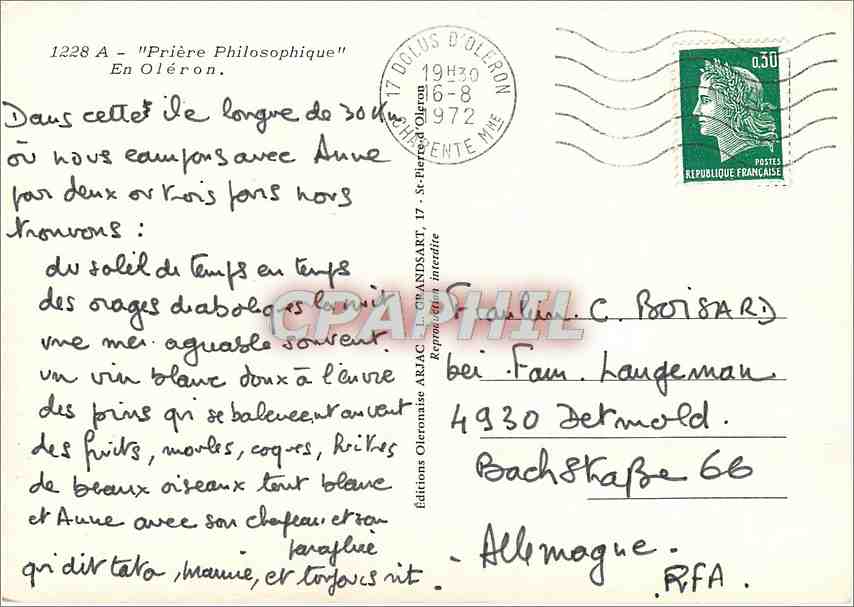 1228 A - "Prière Philosophique"
En Oléron.
Dans cette île longue de 30 Km
où nous campons avec Anne
par deux ou trois fois nous
trouvons :
du soleil de temps en temps
des orages diaboliques la nuit
une mer agréable souvent
un vin blanc doux à l'ivre
des pins qui se balancent au vent
des fruits, moules, coques, huîtres
de beaux oiseaux tout blanc
et Anne avec son chapeau et son
qui dit tata, mamie, et toujours rit.
Éditions Oleronaise ARJAC L. GRANDSART, 17 - St-Pierre-d'Oléron
Reproduction interdite
17 DOLUS D'OLERON
19H30
16-8
1972
CHARENTE MME
0,30
POSTES
REPUBLIQUE FRANÇAISE
CPAPHIL
Fraulein C. BOISARD
bei Fam. Langeman
4930 Detmold.
Bachstraße 66
- Allemagne -
RFA.